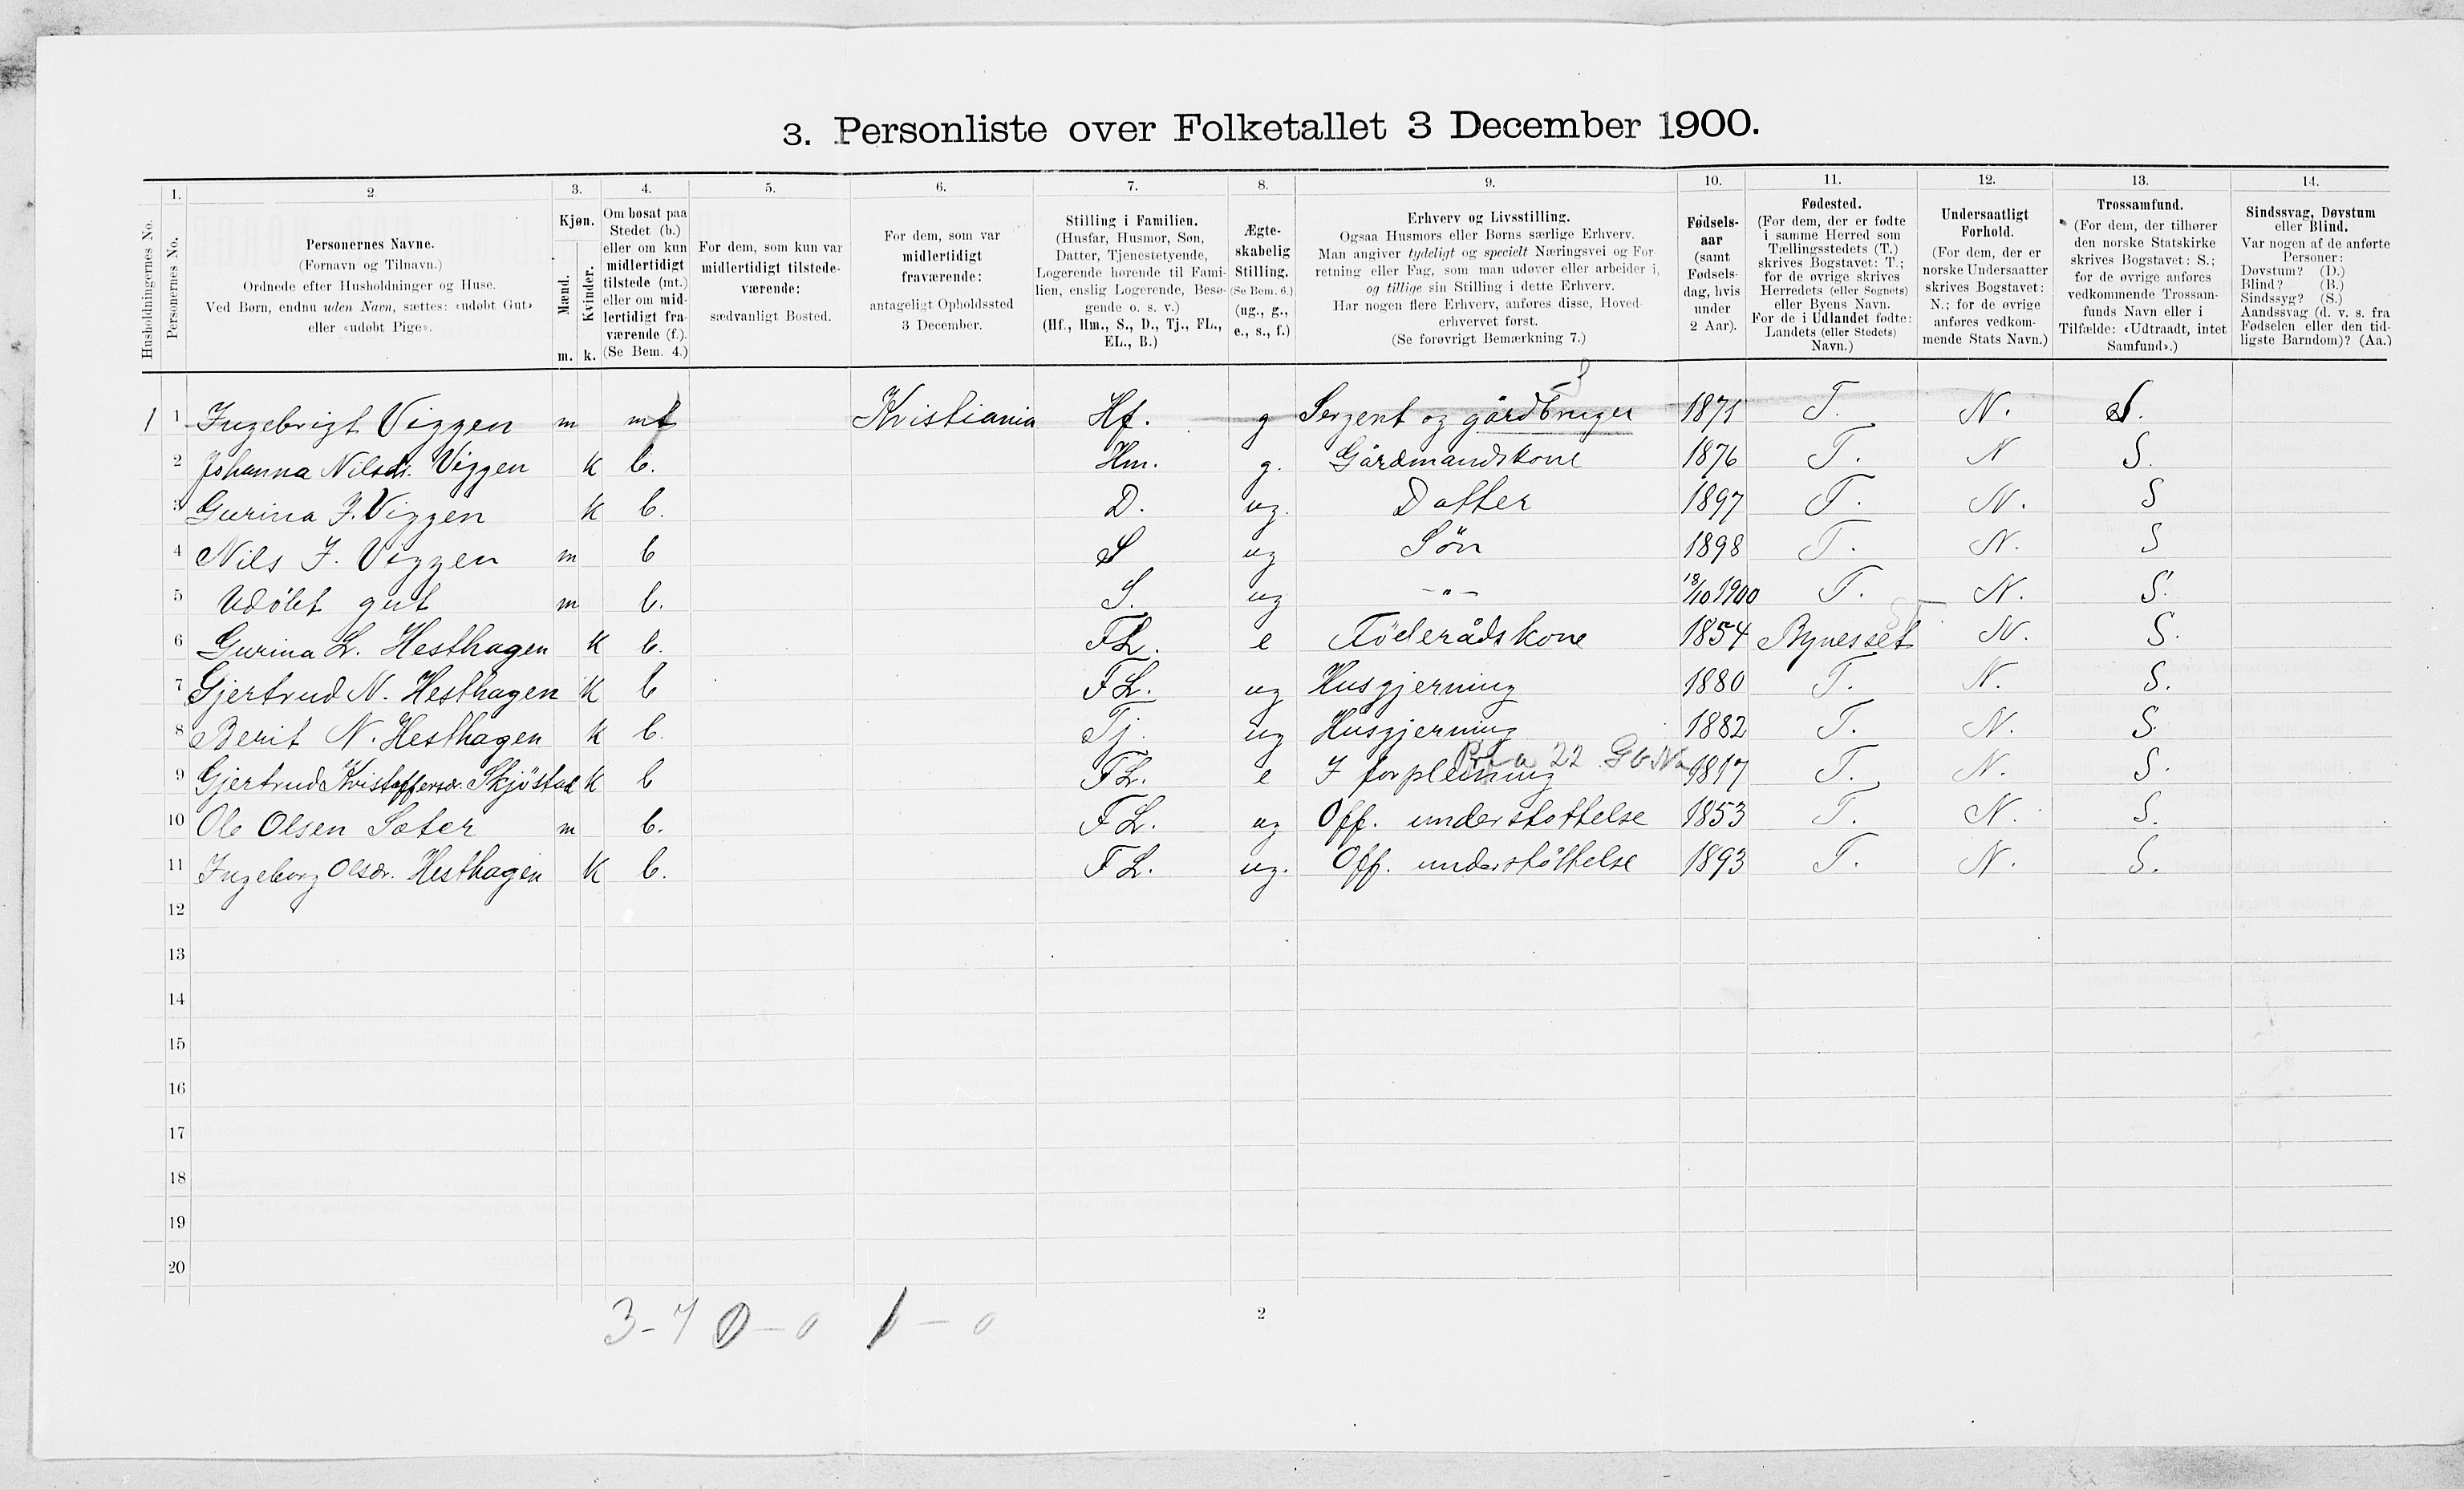 3. Personliste over Folketallet 3 December 1900.
1. 2. 3. 4. 5. 6. 7. 8. 9. 10. 11. 12. 13. 14.
Husholdningernes No.
Personernes No.
Personernes Navne.
(Fornavn og Tilnavn.)
Ordnede efter Husholdninger og Huse.
Ved Børn, endnu uden Navn, sættes: «udøbt Gut»
eller «udøbt Pige».
Kjøn.
Mænd.
Kvinder.
m. k.
Om bosat paa
Stedet (b.)
eller om kun
midlertidigt
tilstede (mt.)
eller om mid-
lertidigt fra-
værende (f.).
(Se Bem. 4.)
For dem, som kun var
midlertidigt tilstede-
værende:
sædvanligt Bosted.
For dem, som var
midlertidigt
fraværende:
antageligt Opholdssted
3 December.
Stilling i Familien.
(Husfar, Husmor, Søn,
Datter, Tjenestetyende,
Logerende hørende til Fami-
lien, enslig Logerende, Besø-
gende o. s. v.)
(Hf., Hm., S., D., Tj., FL.,
EL., B.)
Ægte-
skabelig
Stilling.
(Se Bem. 6.)
(ug., g.,
e., s., f.)
Erhverv og Livsstilling.
Ogsaa Husmors eller Børns særlige Erhverv.
Man angiver tydeligt og specielt Næringsvei og For-
retning eller Fag, som man udøver eller arbeider i,
og tillige sin Stilling i dette Erhverv.
Har nogen flere Erhverv, anføres disse, Hoved-
erhvervet først.
(Se forøvrigt Bemærkning 7.)
Fødsels-
aar
(samt
Fødsels-
dag, hvis
under
2 Aar).
Fødested.
(For dem, der er fødte
i samme Herred som
Tællingsstedets (T.)
skrives Bogstavet: T.;
for de øvrige skrives
Herredets (eller Sognets)
eller Byens Navn.
For de i Udlandet fødte:
Landets (eller Stedets)
Navn.)
Undersaatligt
Forhold.
(For dem, der er
norske Undersaatter
skrives Bogstavet:
N.; for de øvrige
anføres vedkom-
mende Stats Navn.)
Trossamfund.
(For dem, der tilhører
den norske Statskirke
skrives Bogstavet: S.;
for de øvrige anføres
vedkommende Trossam-
funds Navn eller i
Tilfælde: «Udtraadt, intet
Samfund».)
Sindssvag, Døvstum
eller Blind.
Var nogen af de anførte
Personer:
Døvstum? (D.)
Blind? (B.)
Sindssyg? (S.)
Aandssvag (d. v. s. fra
Fødselen eller den tid-
ligste Barndom)? (Aa.)
1 1 Ingebrigt Viggen m Kristiania Hf. g Sergent og gårdbruger 1871 T. N. S.
2 Johanna Nilsdr. Viggen k b. Hm. g. Gårdmandskone 1876 T. N S.
3 Gurina I. Viggen k b. D. ug. Datter 1897 T. N. S
4 Nils I. Viggen m b S ug Søn 1898 T. N. S
5 Udöbt gut m b. S. ug -"- 18/10 1900 T. N. S.
6 Gurina L. Hesthagen k b. FL. e Föderådskone 1854 Bynesset N. S.
7 Gjertrud N. Hesthagen k b FL. ug Husgjerning 1880 T. N. S.
8 Berit N. Hesthagen k b. Tj. ug Husgjerning 1882 T. N. S.
9 Gjertrud Kristoffersdr. Skjöstad k b FL. e I forpleining 1817 T. N. S.
10 Ole Olsen Sæter m b. FL. ug Off. understøttelse 1853 T. N. S.
11 Ingeborg Olsdr. Hesthagen k b. FL. ug. Off. understøttelse 1893 T. N. S.
12
13
14
15
16
17
18
19
20
3-7 0-0 1-0
2